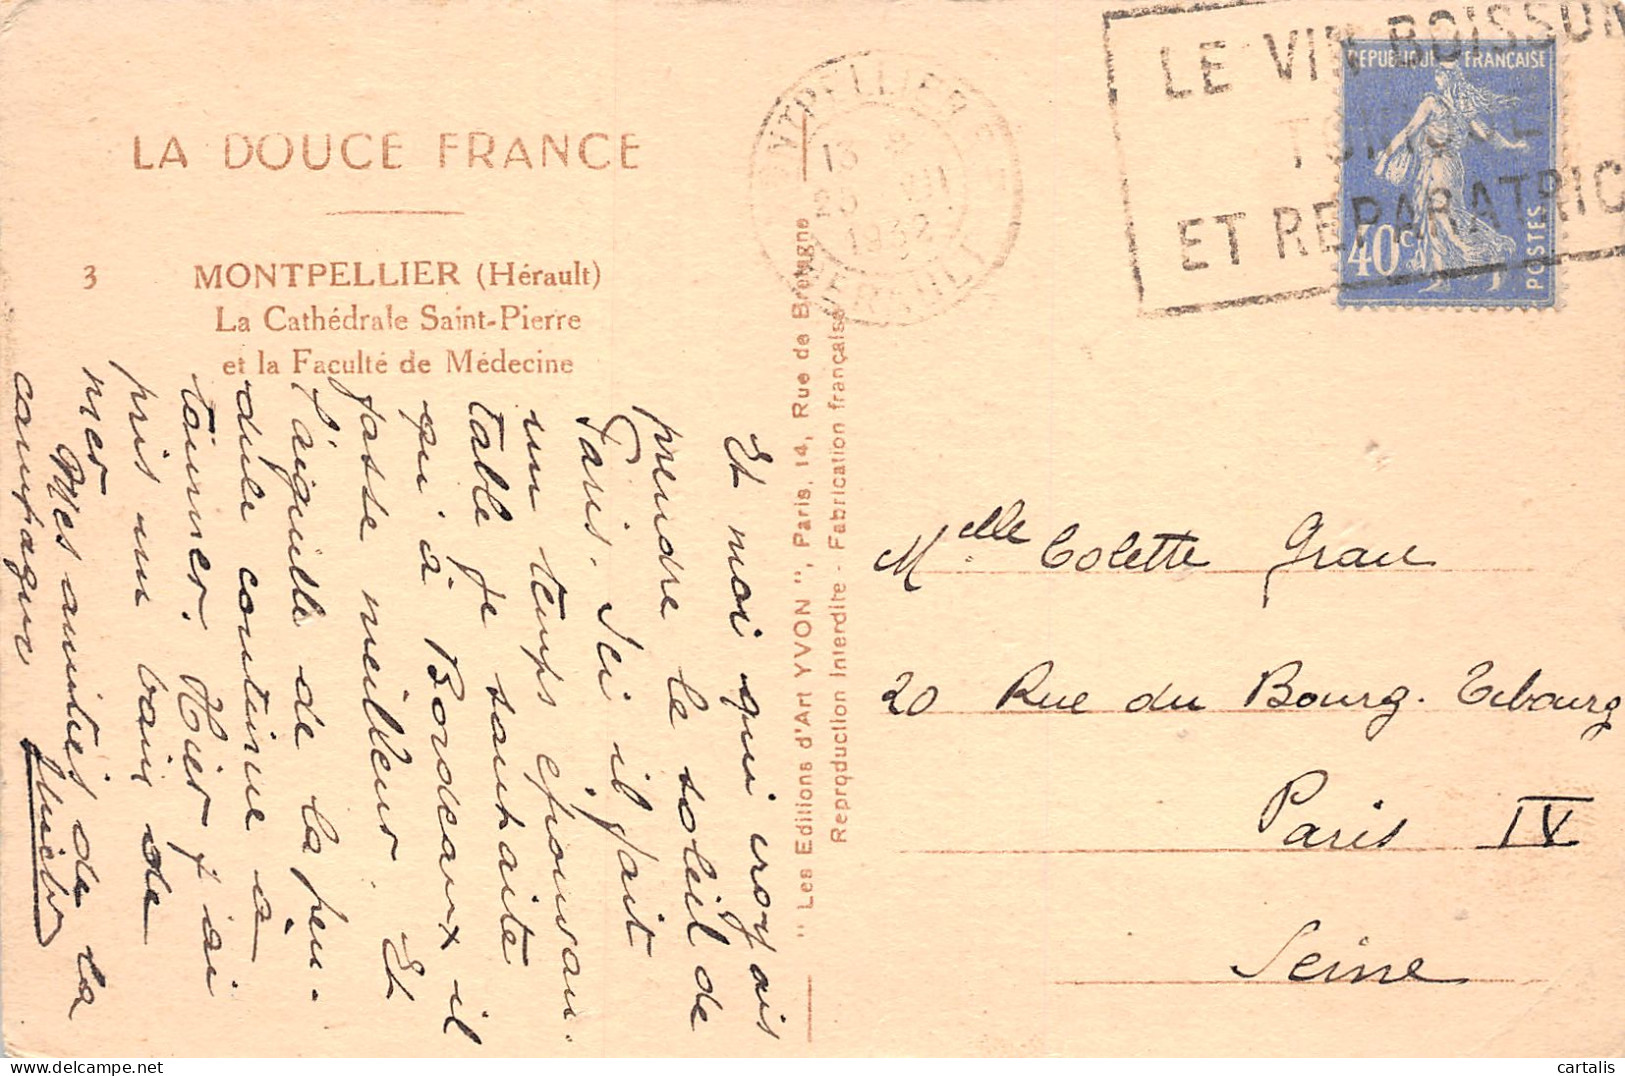 LA DOUCE FRANCE
3 MONTPELLIER (Hérault)
La Cathédrale Saint-Pierre
et la Faculté de Médecine
Et moi qui croyais
prendre le soleil de
Paris. Ici il fait
un temps épouvan.
table je souhaite
qu'à Bordeaux il
fasse meilleur. Et
l'aiguille de la pen.
dule continue à
tourner. Hier j'ai
pris un bain de
mer
Mes amitiés de la
campagne
" Les Editions d'Art YVON ", Paris, 14, Rue de Bretagne
Reproduction Interdite - Fabrication française
MONTPELLIER
13
1932
HERAULT
LE VIN BOISSON
TONIQUE
ET REPARATRIC
REPUBLIQUE FRANÇAISE
40c
POSTES
Melle Colette Grau
20 Rue du Bourg. Tibourg
Paris IV
Seine
cartalis